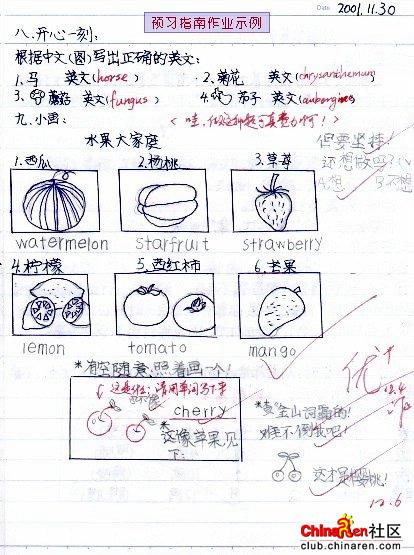 预习指南作业示例
Date 2001.11.30
八、开心一刻:
根据中文(图)写出正确的英文:
1.马 英文(horse) 2.菊花 英文(chrysanthemum)
3.蘑菇 英文(fungus) 4.茄子 英文(aubergine)
九、小画:
水果大家庭 但要坚持!
1.西瓜 2.杨桃 3.草莓 还想做吗?
A.想 B.不想
watermelon starfruit strawberry
4.柠檬 5.西红柿 6.芒果
lemon tomato mango
*有空随意,照着画一个! 优+
cherry
*金山词霸的!
这像苹果
难不倒我呢!
这才是樱桃!
12.6
ChinaRen 社区
club.chinaren.com